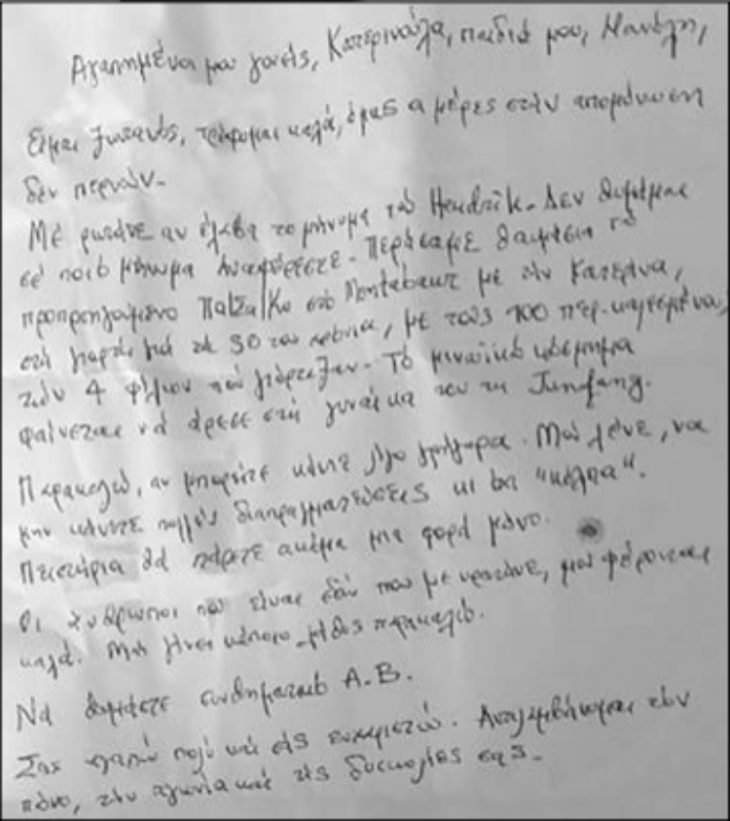 Αγαπημένοι μου γονείς, Κατερινούλα, παιδιά μου, Μανόλη,
Είμαι ζωτανός, τρέφομαι καλά, όμως οι μέρες στην απομόνωση
δεν περνούν.
Με ρωτάνε αν έλαβα το μήνυμα του Hendrik. Δεν θυμάμαι
σε ποιό μήνυμα αναφέρεστε. Περάσαμε θαυμάσια το
προπροηγούμενο Πάσχα στο με την Κατερίνα,
στη γιορτή για τα 50 του χρόνια, με τους 100 περ. καλεσμένους
των 4 φίλων που γιόρταζαν. Το μινωϊκό κόσμημα
φαίνεται να άρεσε στη γυναίκα του τη
Παρακαλώ, αν μπορείτε κάντε λίγο γρήγορα. Μου λένε, να
μην κάνετε πολλές διαπραγματεύσεις κι όχι "κόλπα".
Πειστήρια θα πάρετε ακόμα μια φορά μόνο.
Οι άνθρωποι που είναι εδώ που με κρατάνε, μου φέρονται
καλά. Μη γίνει κάποιο λάθος παρακαλώ.
Να θυμάστε συνθηματικό Α.Β.
Σας αγαπώ πολύ και σας ευχαριστώ. Αντιλαμβάνομαι τον
πόνο, την αγωνία και τις δυσκολίες σας.